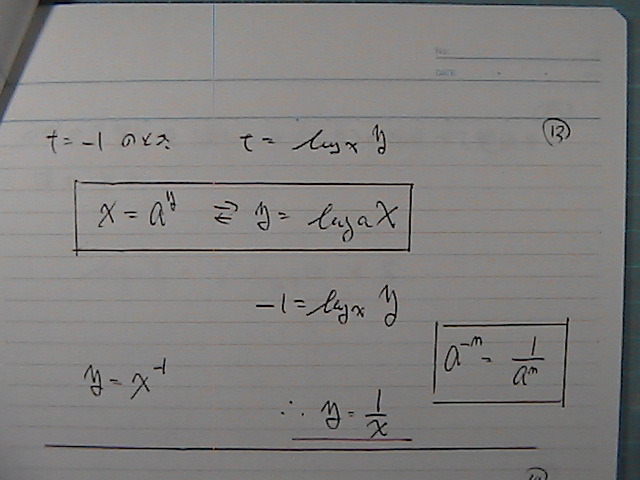 No.
DATE
t = -1 のとき t = log_x y ⑬
x = a^y ⇄ y = log_a x
-1 = log_x y
a^{-n} = 1/a^n
y = x^{-1}
∴ y = 1/x